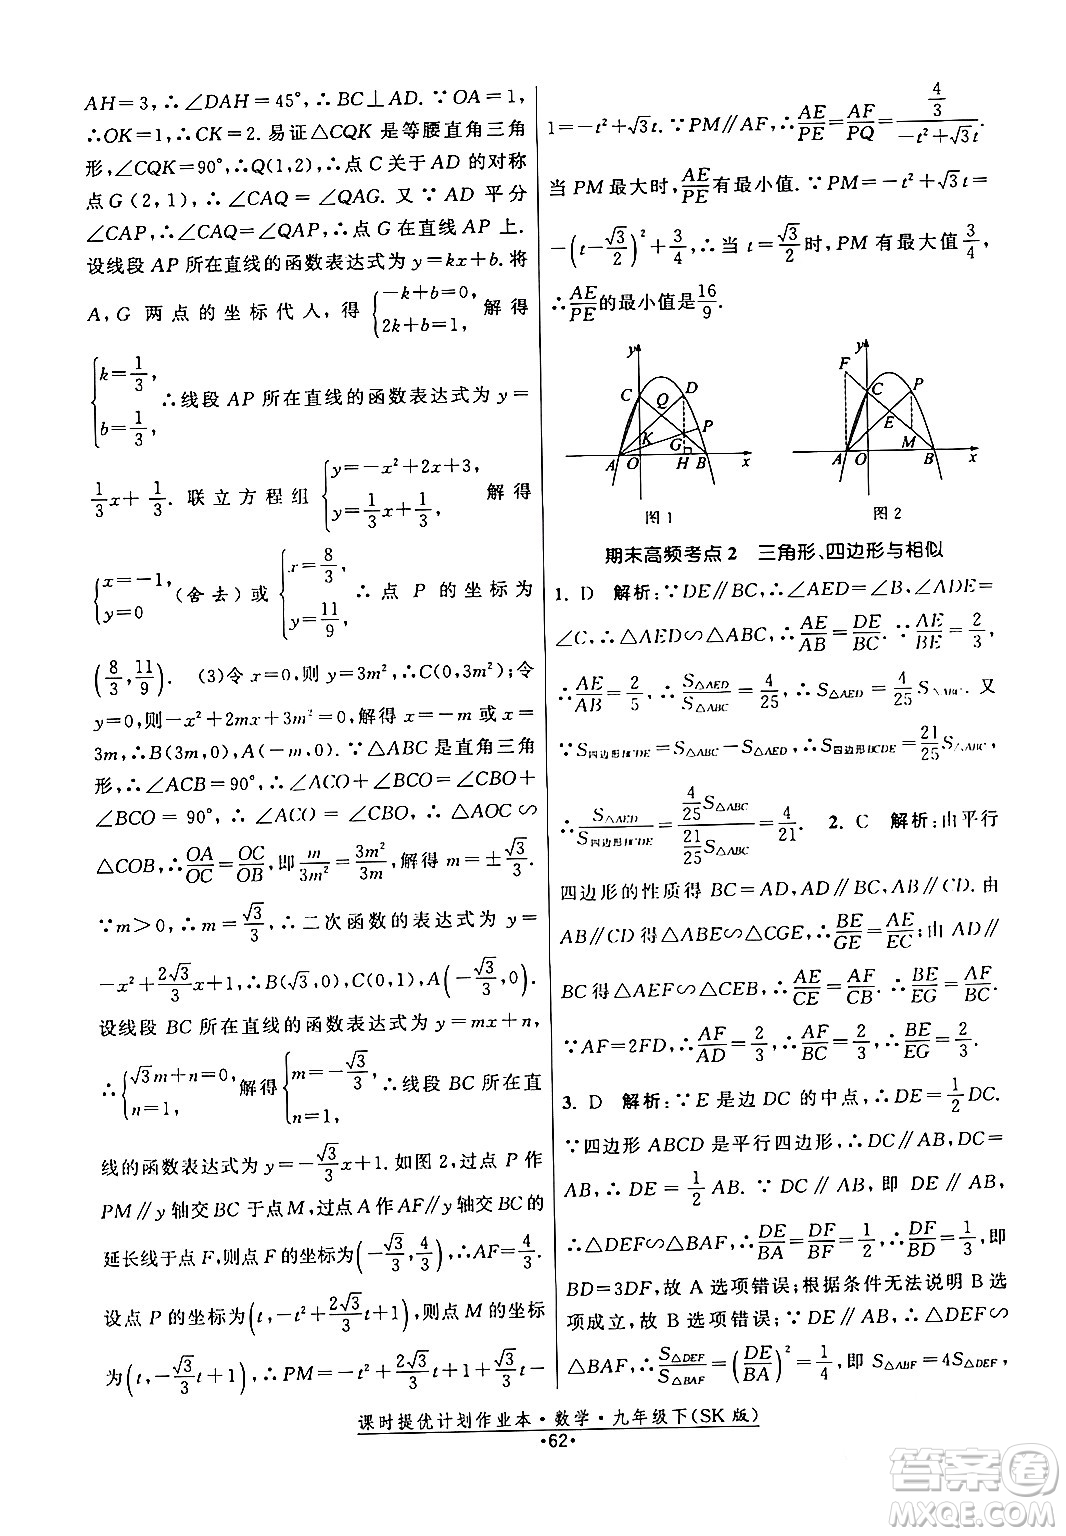 AH=3,∴∠DAH=45°,∴BC⊥AD.∵OA=1,
∴OK=1,∴CK=2.易证△CQK是等腰直角三角
形,∠CQK=90°,∴Q(1,2),∴点C关于AD的对称
点G(2,1),∴∠CAQ=∠QAG.又∵AD平分
∠CAP,∴∠CAQ=∠QAP,∴点G在直线AP上.
设线段AP所在直线的函数表达式为y=kx+b.将
A,G两点的坐标代入,得{-k+b=0, 2k+b=1,解得
{k=1/3, b=1/3,∴线段AP所在直线的函数表达式为y=
1/3x+1/3.联立方程组{y=-x²+2x+3, y=1/3x+1/3,解得
{x=-1, y=0(舍去)或{x=8/3, y=11/9,∴点P的坐标为
(8/3,11/9). (3)令x=0,则y=3m²,∴C(0,3m²);令
y=0,则-x²+2mx+3m²=0,解得x=-m或x=
3m,∴B(3m,0),A(-m,0).∵△ABC是直角三角
形,∴∠ACB=90°,∴∠ACO+∠BCO=∠BCO+
∠CBO=90°,∴∠ACO=∠CBO,∴△AOC∽
△COB,∴OA/OC=OC/OB,即m/3m²=3m²/3m,解得m=±√3/3.
∵m>0,∴m=√3/3,∴二次函数的表达式为y=
-x²+2√3/3x+1,∴B(√3,0),A(-√3/3,0).
设线段BC所在直线的函数表达式为y=mx+n,
∴{√3m+n=0, n=1,解得{m=-√3/3, n=1,∴线段BC所在直
线的函数表达式为y=-√3/3x+1.如图2,过点P作
PM∥y轴交BC于点M,过点A作AF∥y轴交BC的
延长线于点F,则点F的坐标为(-√3/3,4/3),∴AF=4/3.
设点P的坐标为(t,-t²+2√3/3t+1),则点M的坐标
为(t,-√3/3t+1),∴PM=-t²+2√3/3t+1+√3/3t-
1=-t²+√3t.∵PM∥AF,∴AE/PE=AF/PQ=4/3/(-t²+√3t).
当PM最大时,AE/PE有最小值.∵PM=-t²+√3t=
-(t-√3/2)²+3/4,∴当t=√3/2时,PM有最大值3/4,
∴AE/PE的最小值是16/9.
y C Q D K P G A O H B x
图1
y F C P E M A O B x
图2
期末高频考点2 三角形、四边形与相似
1. D 解析:∵DE∥BC,∴∠AED=∠B,∠ADE=
∠C,∴△AED∽△ABC,∴AE/AB=DE/BC.∵AE/BE=2/3,
∴AE/AB=2/5,∴S△AED/S△ABC=4/25,∴S△AED=4/25S△ABC.又
∵S四边形BCDE=S△ABC-S△AED,∴S四边形BCDE=21/25S△ABC,
∴S△AED/S四边形BCDE=4/25S△ABC/21/25S△ABC=4/21. 2. C 解析:由平行
四边形的性质得BC=AD,AD∥BC,AB∥CD.由
AB∥CD得△ABE∽△CGE,∴BE/GE=AE/EC;由AD∥
BC得△AEF∽△CEB,∴AE/CE=AF/CB.∴BE/EG=AF/BC.
∵AF=2FD,∴AF/AD=2/3,∴AF/BC=2/3,∴BE/EG=2/3.
3. D 解析:∵E是边DC的中点,∴DE=1/2DC.
∵四边形ABCD是平行四边形,∴DC∥AB,DC=
AB,∴DE=1/2AB.∵DC∥AB,即DE∥AB,
∴△DEF∽△BAF,∴DE/BA=DF/BF=1/2,∴DF/BD=1/3,即
BD=3DF,故A选项错误;根据条件无法说明B选
项成立,故B选项错误;∵DE∥AB,∴△DEF∽
△BAF,∴S△DEF/S△BAF=(DE/BA)²=1/4,即S△ABF=4S△DEF,
课时提优计划作业本·数学·九年级下(SK版)
·62·
答案圈
MXQE.COM